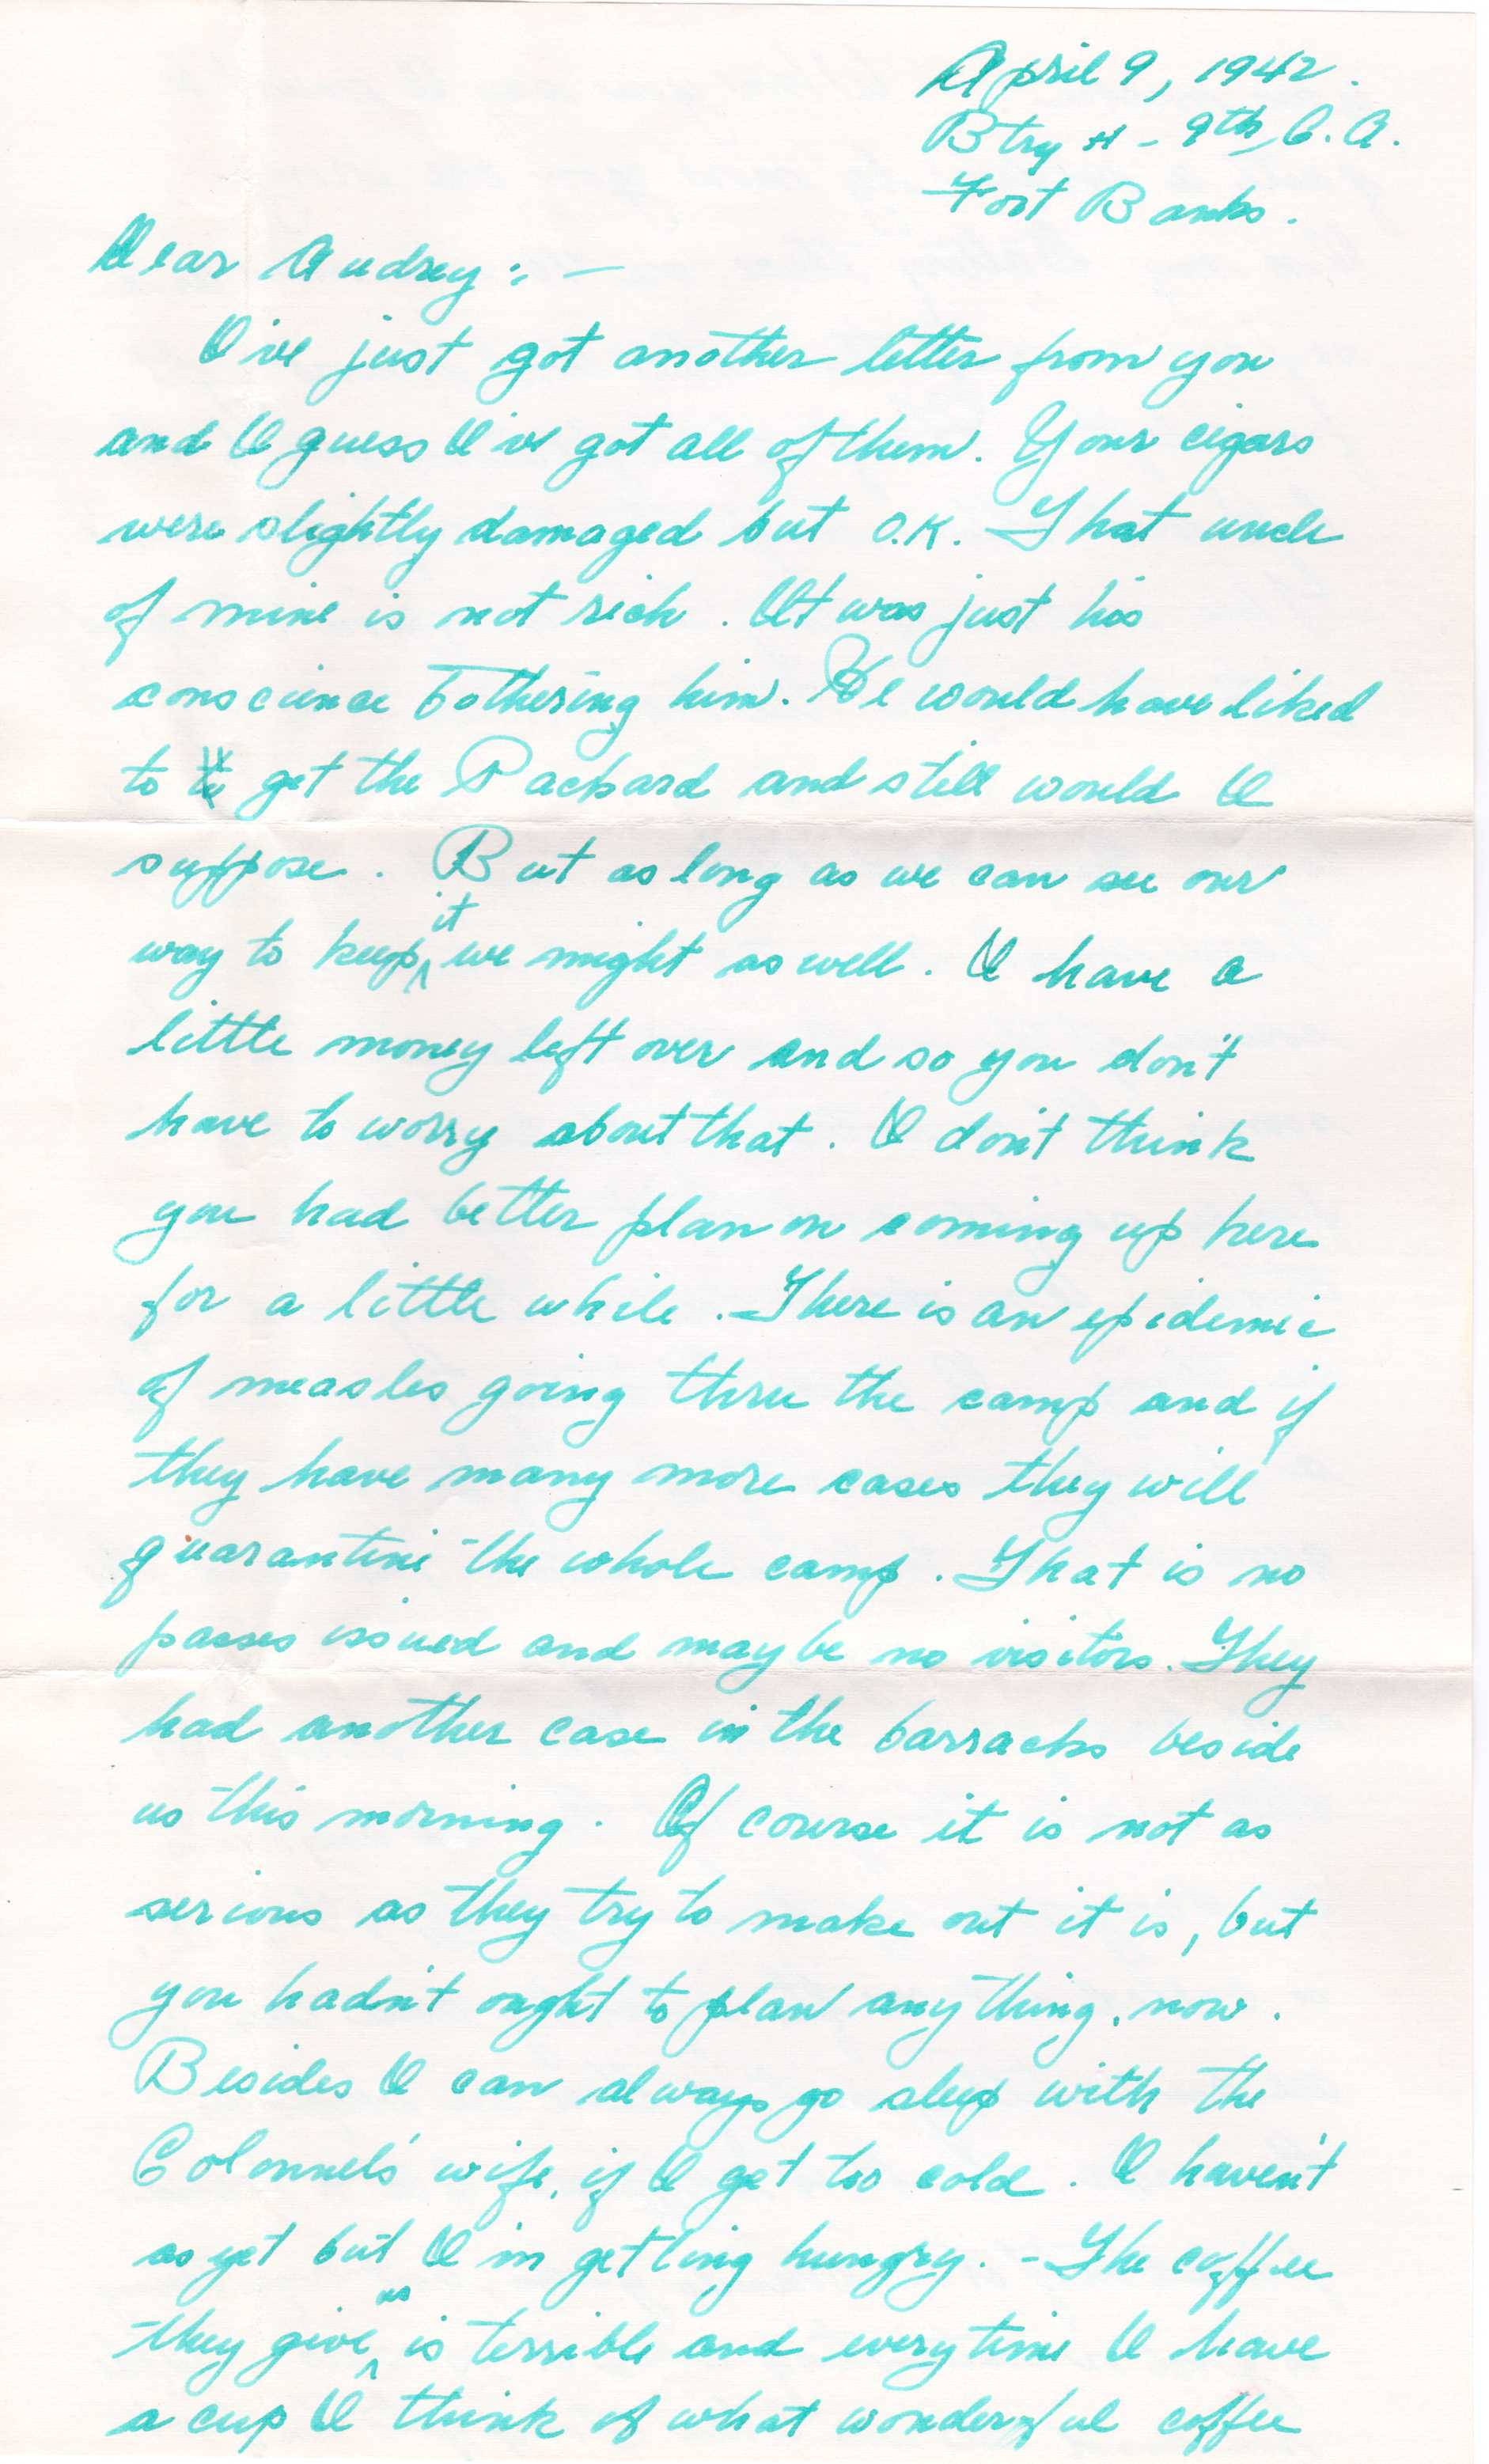 April 9, 1942.
Btry H - 9th C.A.
Fort Banks.
Dear Audrey: -
I've just got another letter from you
and I guess I've got all of them. Your cigars
were slightly damaged but O.K. That uncle
of mine is not rich. It was just his
conscience bothering him. He would have liked
to get the Packard and still would I
suppose. But as long as we can see our
way to keep it we might as well. I have a
little money left over and so you don't
have to worry about that. I don't think
you had better plan on coming up here
for a little while. There is an epidemic
of measles going thru the camp and if
they have many more cases they will
quarantine the whole camp. That is no
passes issued and maybe no visitors. They
had another case in the barracks beside
us this morning. Of course it is not as
serious as they try to make out it is, but
you hadn't ought to plan anything, now.
Besides I can always go sleep with the
Colonnels' wife, if I get too cold. I haven't
as yet but I'm getting hungry. - The coffee
they give us is terrible and everytime I have
a cup I think of what wonderful coffee